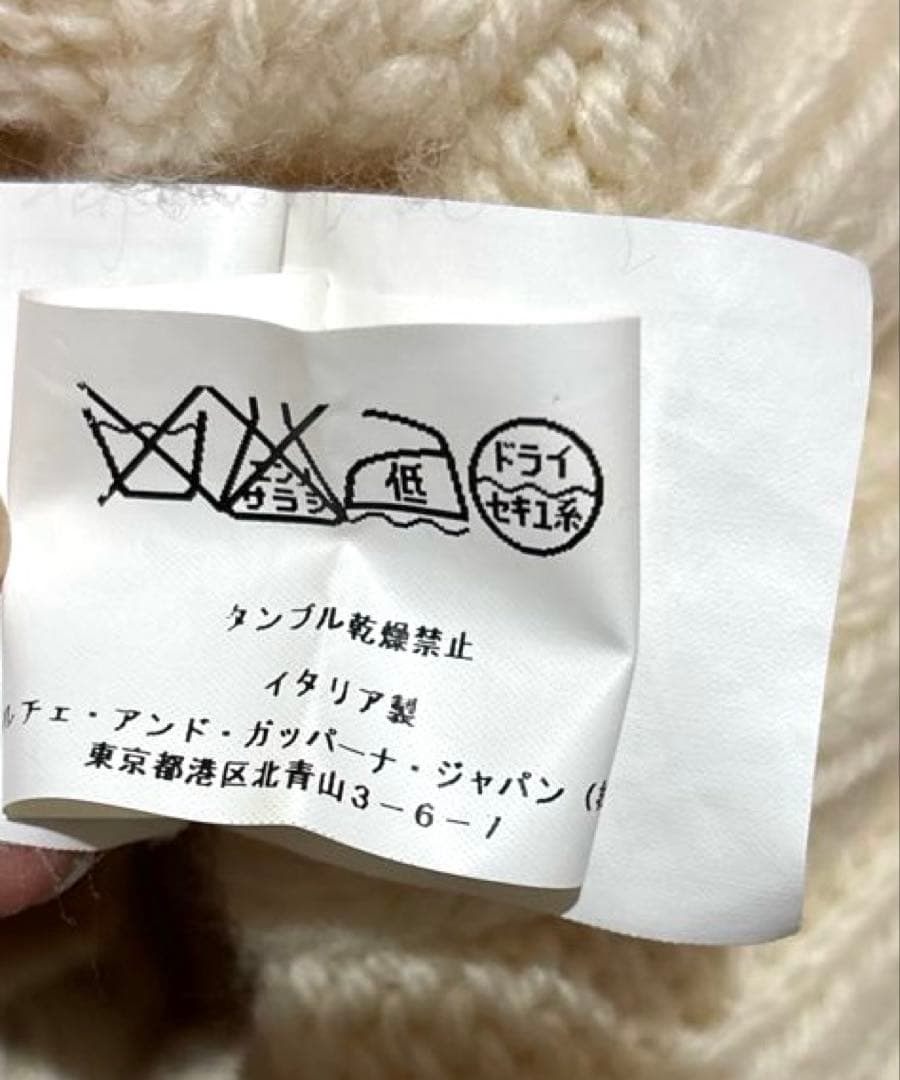 エンソ
サラシ
低
ドライ
セキユ系
タンブル乾燥禁止
イタリア製
ルチェ・アンド・ガッバーナ・ジャパン(株
東京都港区北青山3-6-1